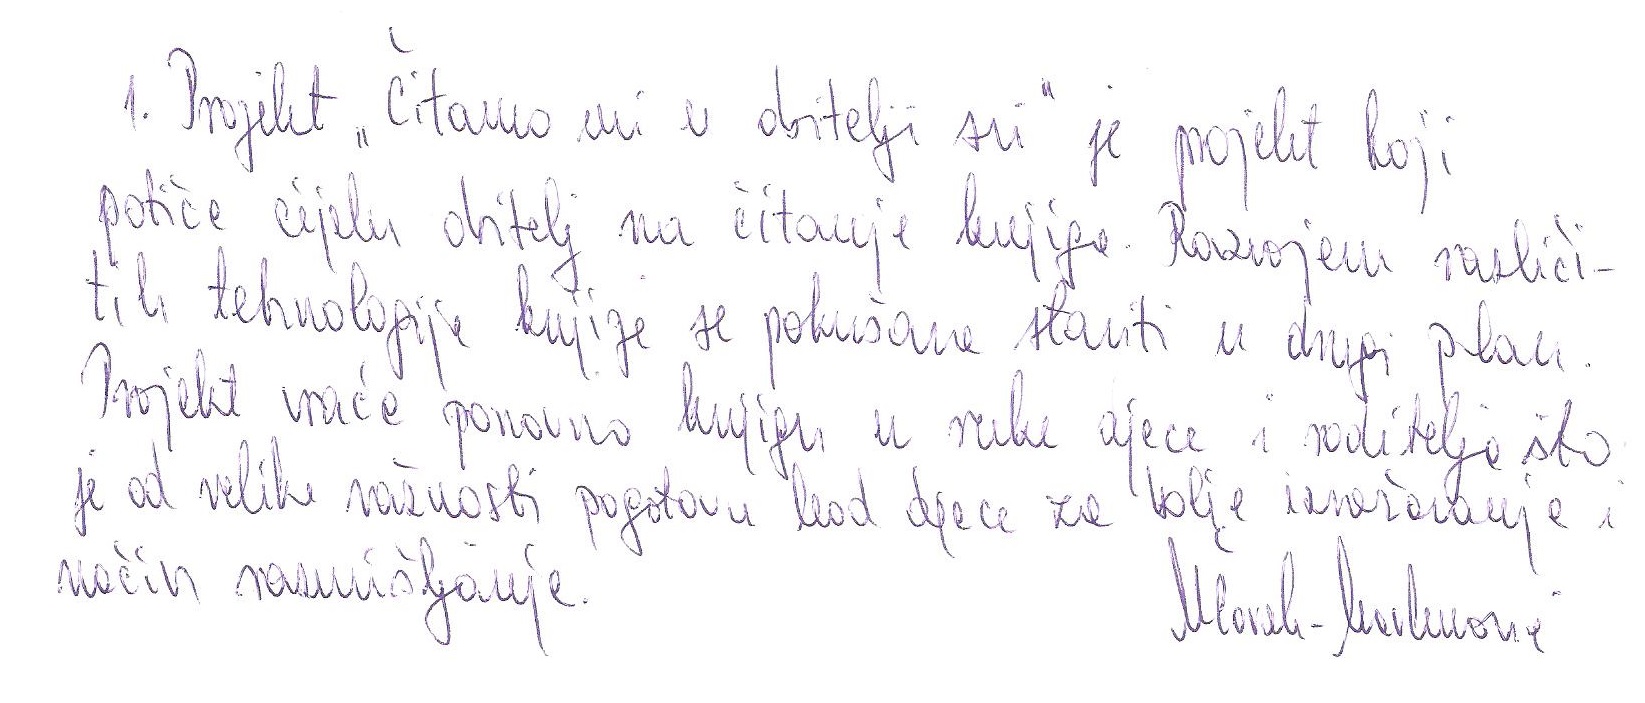 1. Projekt „Čitamo mi u obitelji svi“ je projekt koji
potiče cijelu obitelj na čitanje knjige. Razvojem različi-
tih tehnologija knjige se pokušava staviti u drugi plan.
Projekt vraća ponovno knjigu u ruke djece i roditelja što
je od velike važnosti pogotovu kod djece za bolje izražavanje i
način razmišljanja.